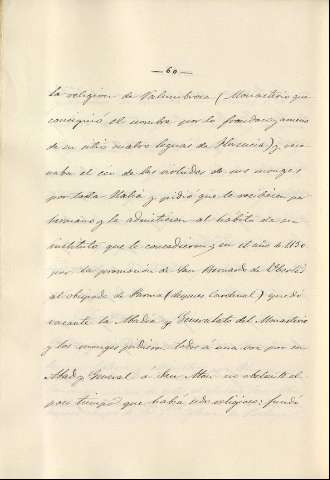 — 60 —
la religion de Valumbrosa (Monasterio que
consiguió el nombre por lo frondoso y ameno
de su sitio cuatro leguas de Florencia) y
el eco de las virtudes de sus monges
por toda Italia y pidió que le recibiesen por
hermano y le admitiesen al habito de su
instituto que le concedieron y en el año de 1130
por la promocion de San Bernardo de Uberto
al obispado de Parma (despues Cardenal) quedó
vacante la Abadia y Generalato del Monasterio
y los monges pidieron todos á una voz por su
Abad y General á Don Atón no obstante el
poco tiempo que habia sido religioso: fundó